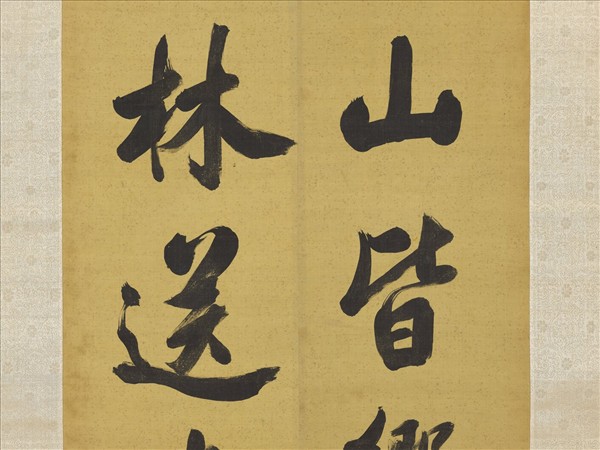 山皆
林送